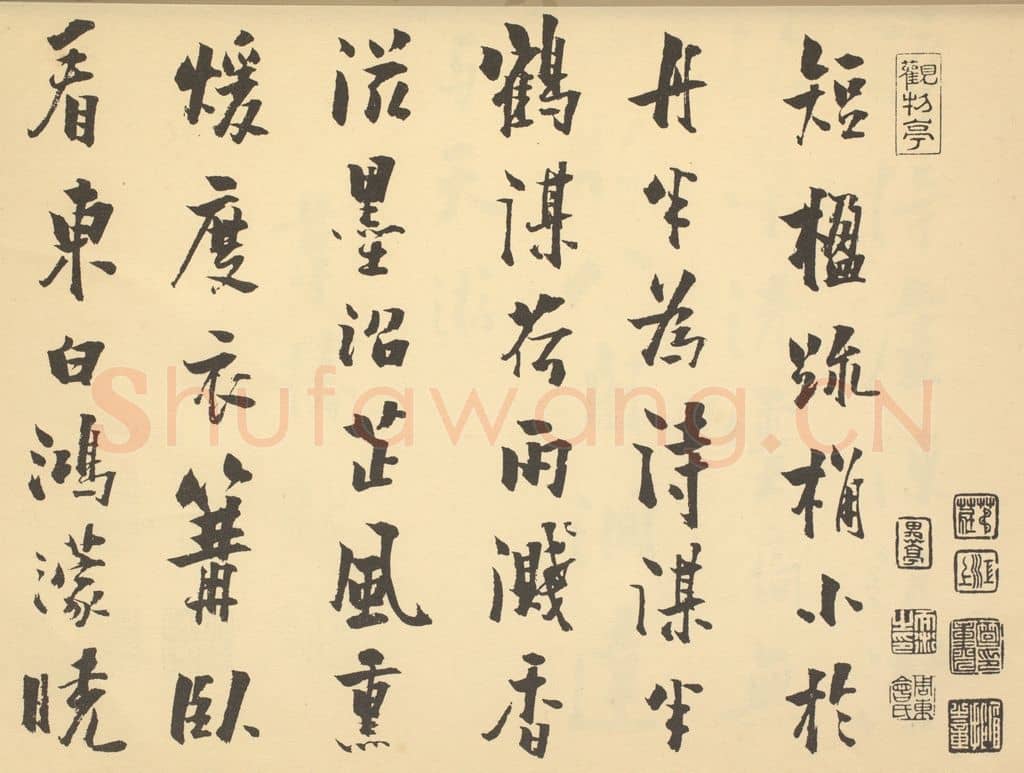 觀物亭
短楹疏桷小於
舟半為詩謀半
鶴謀荷雨濺香
滋墨沼芷風熏
煖度衣篝臥
看東白鴻濛曉
Shufawang.CN